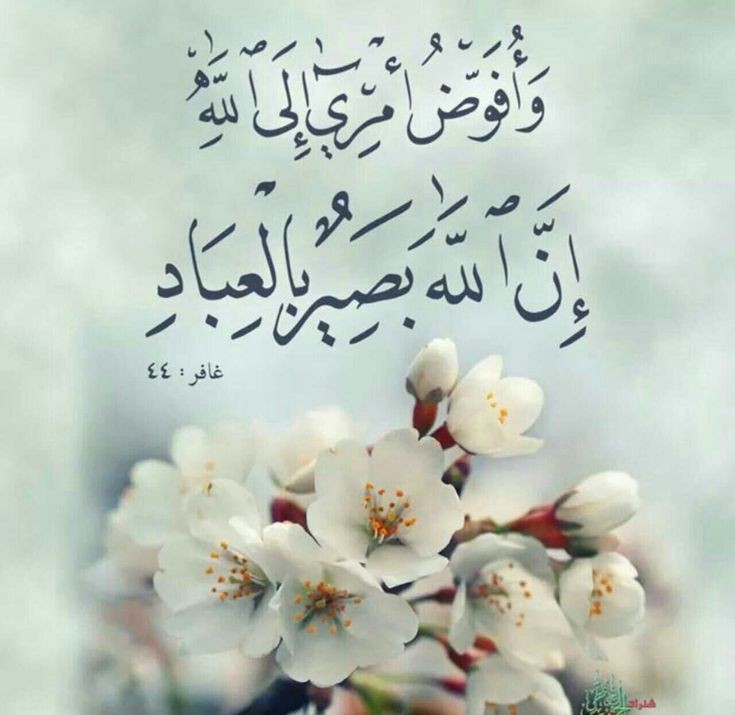 وَأُفَوِّضُ أَمْرِيٓ إِلَى ٱللَّهِ
إِنَّ ٱللَّهَ بَصِيرٌۢ بِالْعِبَادِ
غافر : ٤٤